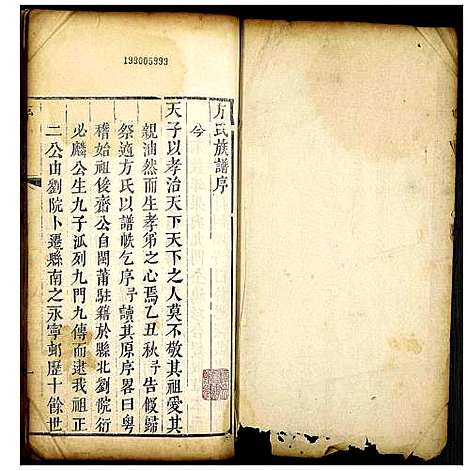 193005993
方氏族譜序
今
天子以孝治天下天下之人莫不敬其祖愛其
親油然而生孝弟之心焉乙丑秋予告假歸
祭適方氏以譜帙乞序予讀其原序畧曰粤
稽始祖後齋公自閩莆駐籍於縣北劉院衍
必麟公生九子派列九門九傳而逮我祖正
二公由劉院卜遷縣南之永寧邨歷十餘世